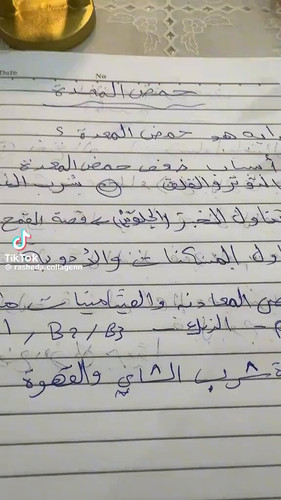 Date No
حمض المعدة
ايه هو حمض المعدة ؟
أسباب ضعف حمض المعدة
التوتر والقلق شرب
تناول الخبز (الجلوتين) قصة القمح
المسكنات والأدوية
المعادن والفيتامينات
الزنك - B2 / B3 /
شرب الشاي والقهوة
TikTok
@ rasheda.collagenn